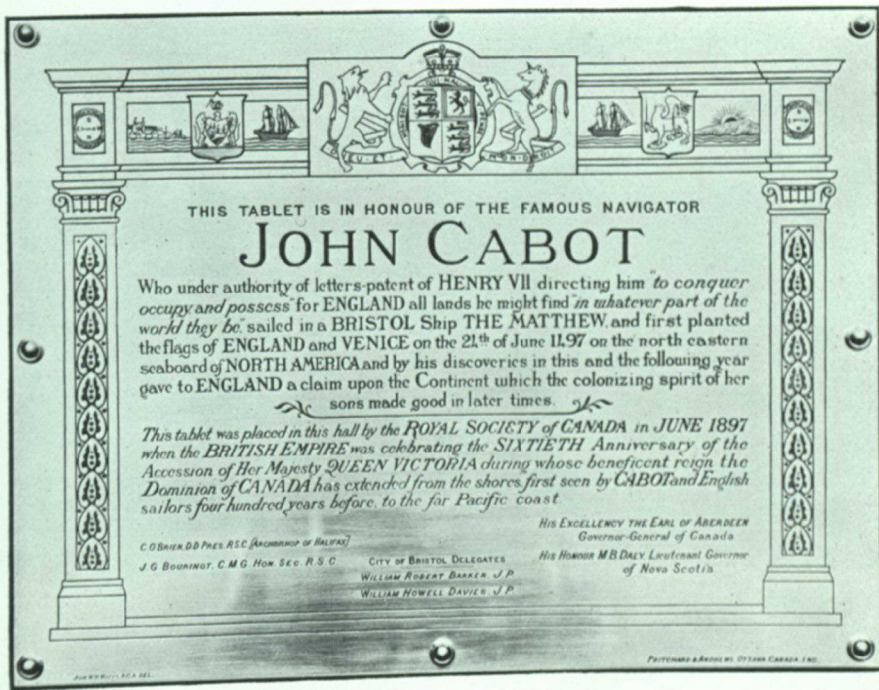 DIEU·ET· MON·DROIT
THIS TABLET IS IN HONOUR OF THE FAMOUS NAVIGATOR
JOHN CABOT
Who under authority of letters-patent of HENRY VII directing him "to conquer
occupy and possess" for ENGLAND all lands he might find "in whatever part of the
world they be," sailed in a BRISTOL Ship THE MATTHEW, and first planted
the flags of ENGLAND and VENICE on the 24th of June 1497 on the north eastern
seaboard of NORTH AMERICA, and by his discoveries in this and the following year
gave to ENGLAND a claim upon the Continent which the colonizing spirit of her
sons made good in later times.
This tablet was placed in this hall by the ROYAL SOCIETY of CANADA in JUNE 1897
when the BRITISH EMPIRE was celebrating the SIXTIETH Anniversary of the
Accession of Her Majesty QUEEN VICTORIA during whose beneficent reign the
Dominion of CANADA has extended from the shores first seen by CABOT and English
sailors four hundred years before, to the far Pacific coast.
C. O'BRIEN. D.D. PRES. R.S.C. [ARCHBISHOP OF HALIFAX]
J. G. BOURINOT. C.M.G. HON. SEC. R.S.C
CITY OF BRISTOL DELEGATES
WILLIAM ROBERT BARKER. J.P.
WILLIAM HOWELL DAVIES. J.P.
HIS EXCELLENCY THE EARL OF ABERDEEN
Governor-General of Canada
HIS HONOUR M.B. DALY. Lieutenant Governor
of Nova Scotia
PRITCHARD & ANDREWS OTTAWA CANADA. ENG.